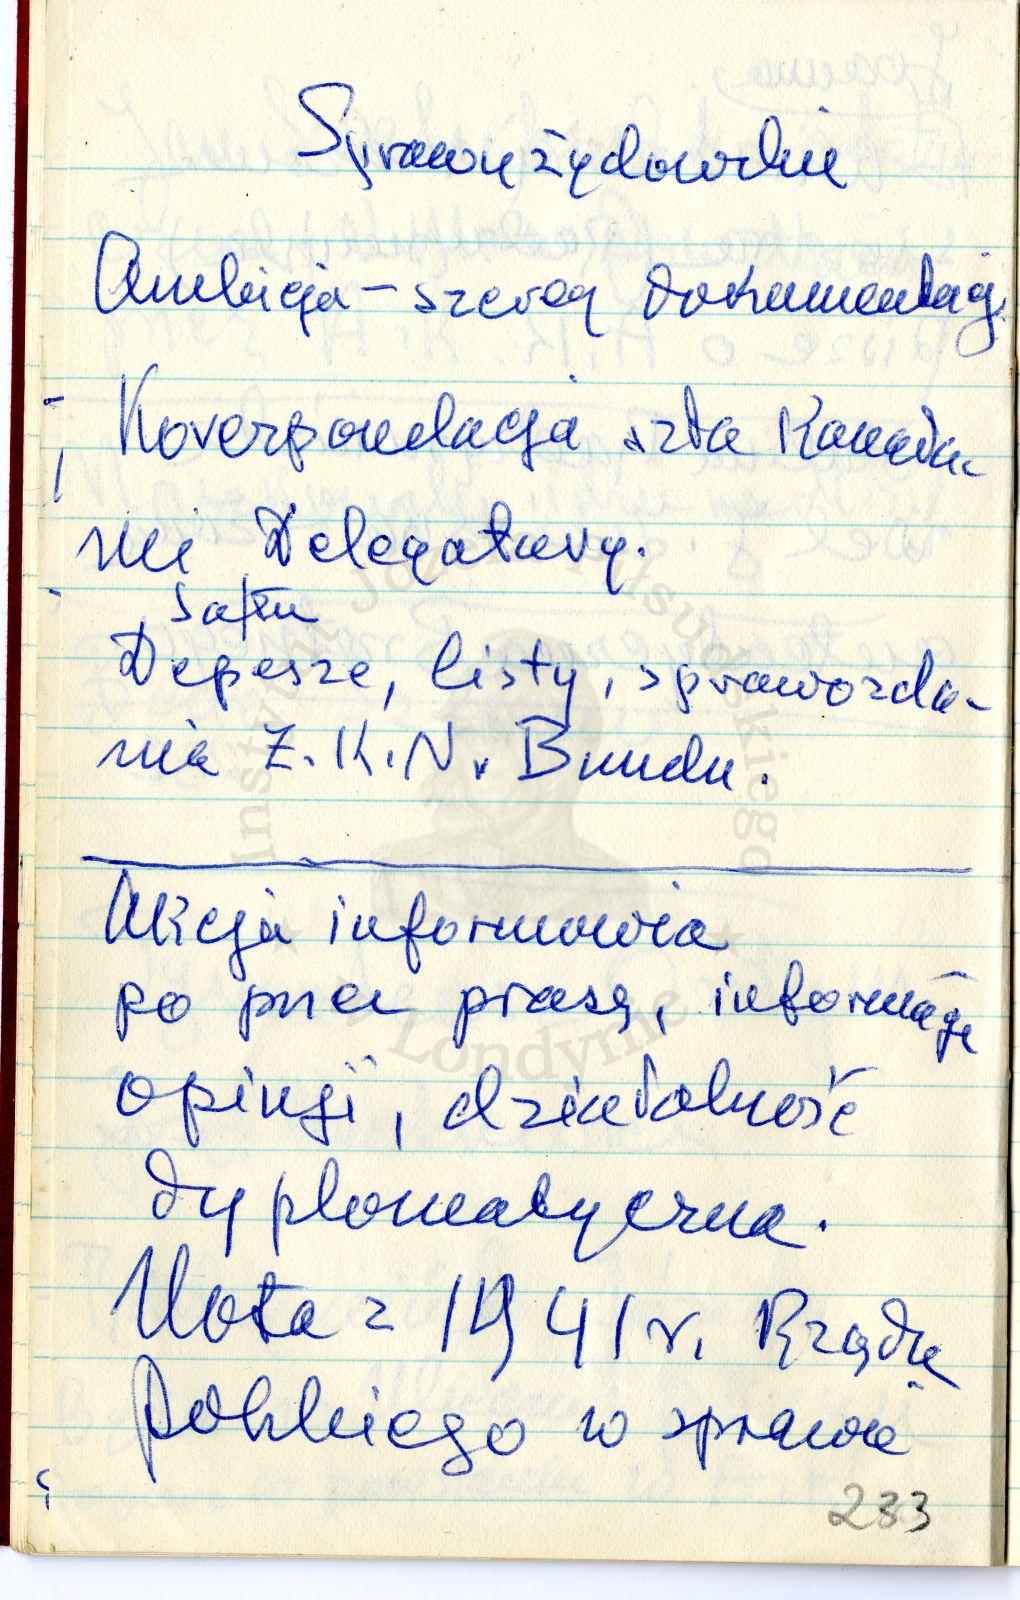 Sprawy żydowskie
Ambicja – szereg dokumentacj
Korespondacja szła Kanała-
mi Delegatury.
Depesze, listy, sprawozda-
nia Ż.K.N. Bundu.
Akcja informowia
po prasę, informację
opinji, działalność
dyplomatyczna.
Nota z 1941 r. Rządu
Polskiego w sprawie
233
Instytut Józefa Piłsudskiego
w Londynie